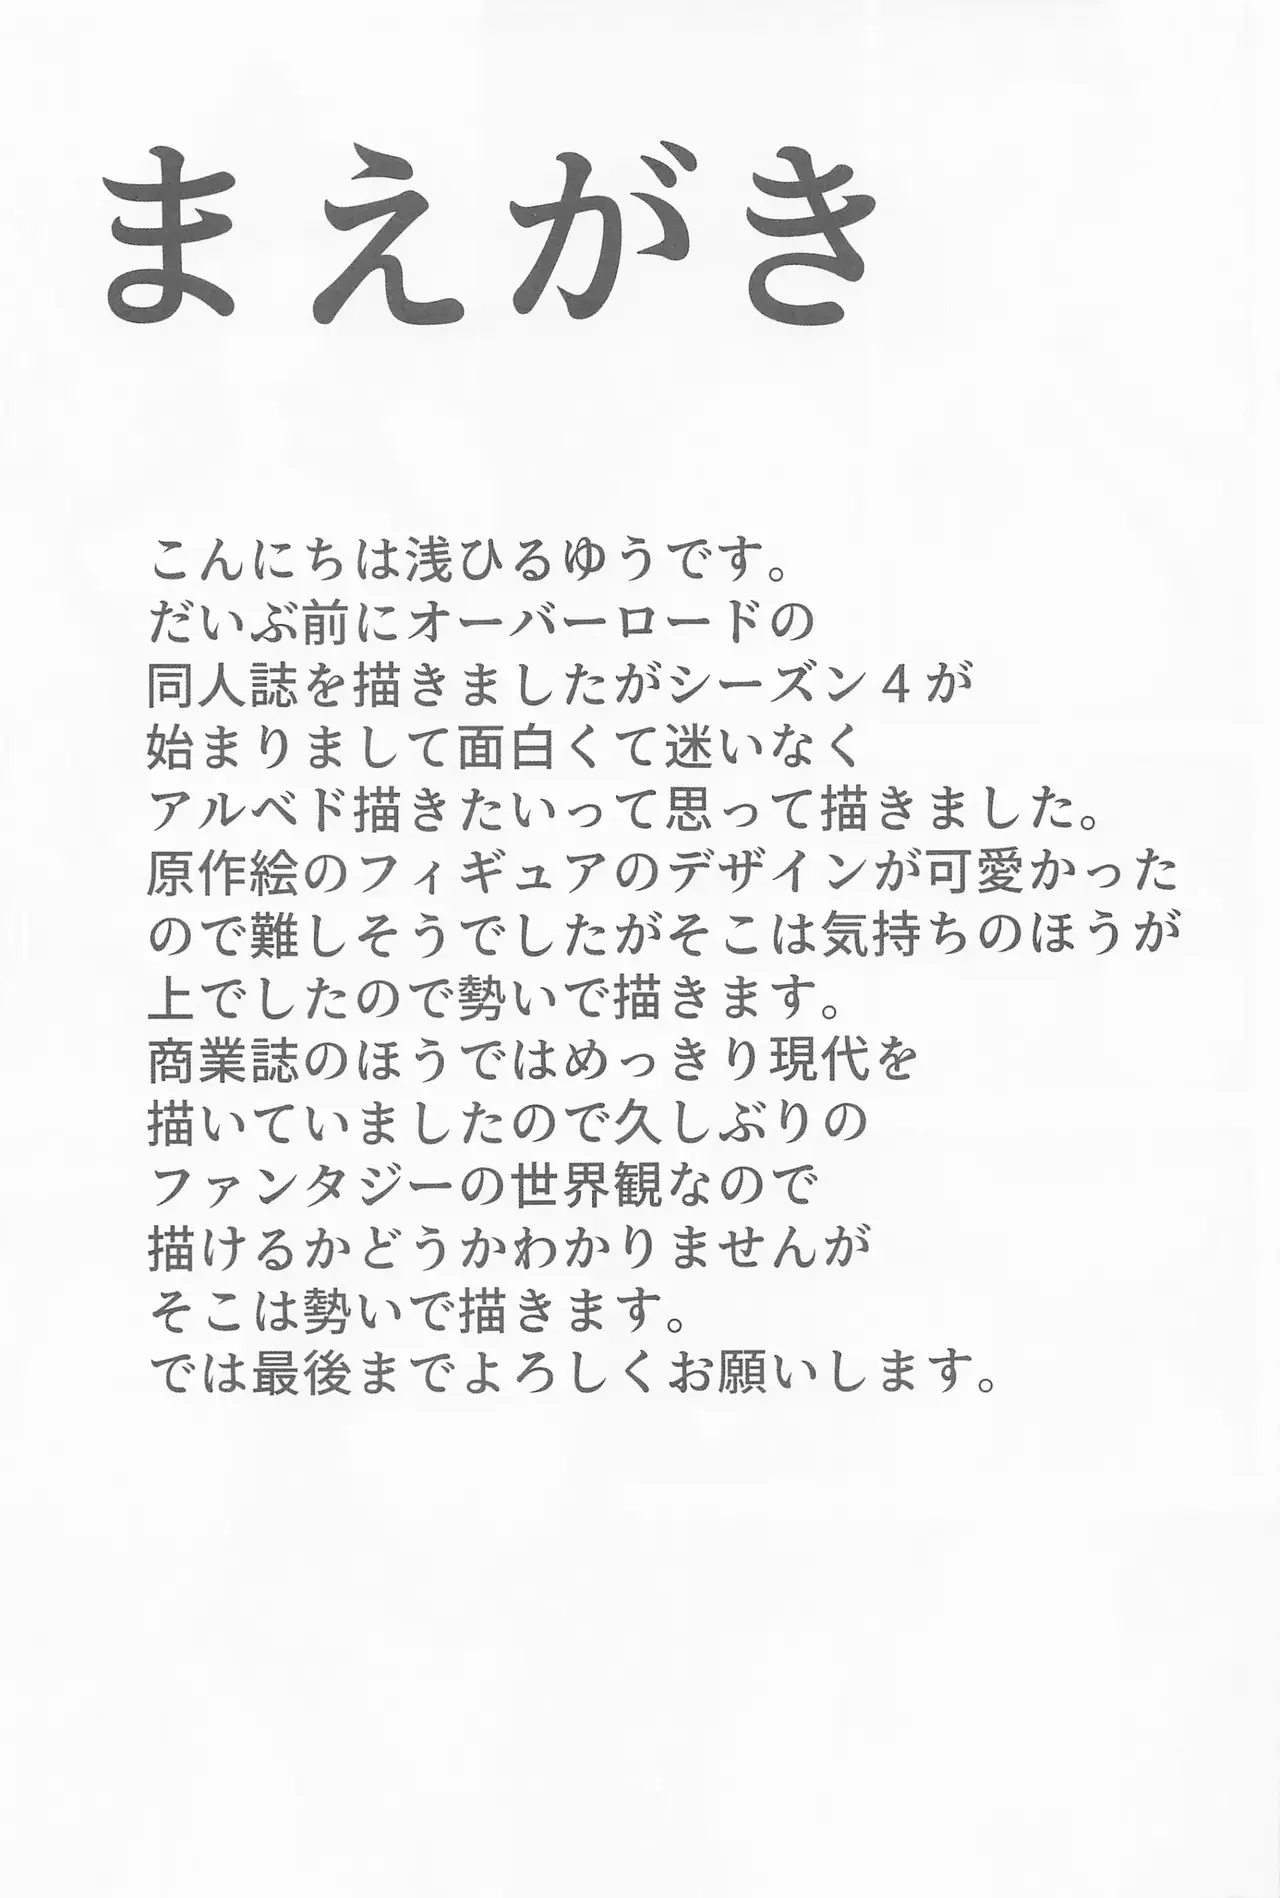 まえがき
こんにちは浅ひるゆうです。
だいぶ前にオーバーロードの
同人誌を描きましたがシーズン４が
始まりまして面白くて迷いなく
アルベド描きたいって思って描きました。
原作絵のフィギュアのデザインが可愛かった
ので難しそうでしたがそこは気持ちのほうが
上でしたので勢いで描きます。
商業誌のほうではめっきり現代を
描いていましたので久しぶりの
ファンタジーの世界観なので
描けるかどうかわかりませんが
そこは勢いで描きます。
では最後までよろしくお願いします。